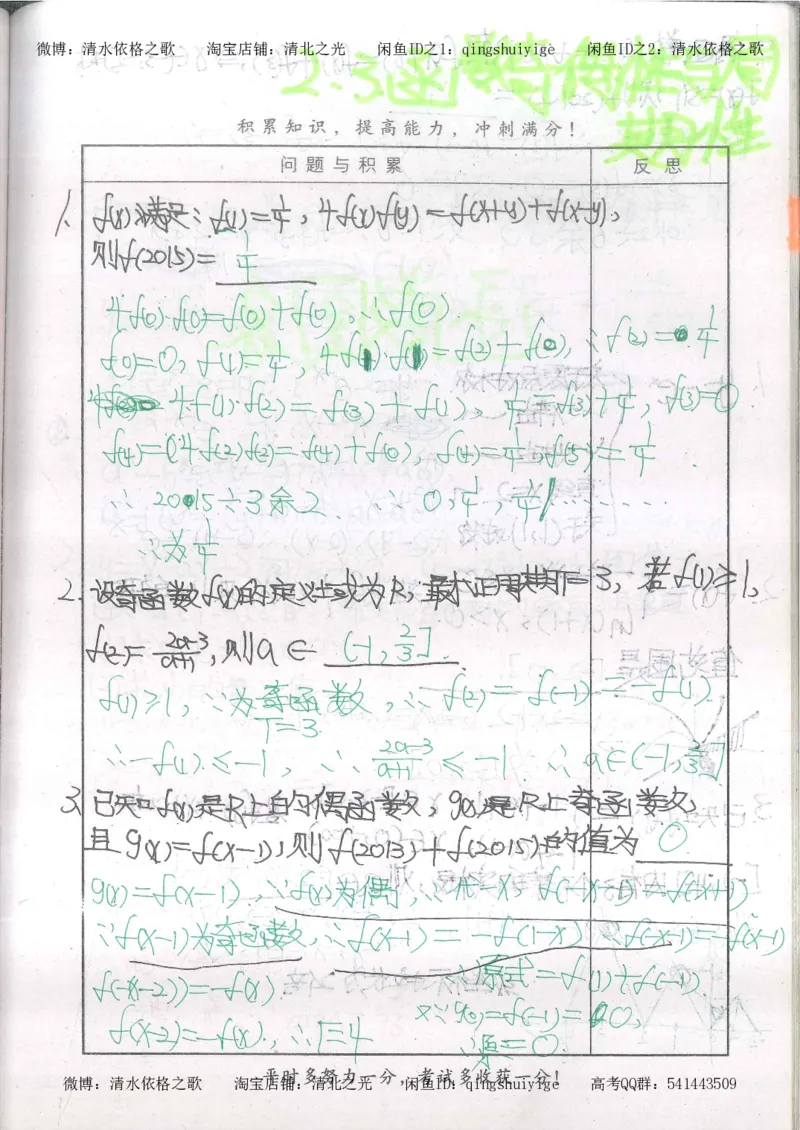 微博：清水依格之歌 淘宝店铺：清北之光 闲鱼ID之1：qingshuiyige 闲鱼ID之2：清水依格之歌
2.3函数奇偶性与周
期性
积累知识，提高能力，冲刺满分！
问题与积累 反思
1. f(x)满足：f(1)=1/4，4f(x)f(y)=f(x+y)+f(x-y)，
则f(2015)= 1/4
4f(0)·f(0)=f(0)+f(0)，∴f(0).
f(0)=0，f(1)=1/4，4f(1)·f(1)=f(2)+f(0)，∴f(2)=1/4
4·f(1)·f(2)=f(3)+f(1)，1/4=f(3)+1/4，f(3)=0
f(4)=(4f(2)f(2)=f(4)+f(0)，f(4)=1/4，f(5)=1/4
∴2015÷3余2 ∴0，1/4，1/4……
∴为1/4
2. 设奇函数f(x)的定义域为R，最小正周期T=3，若f(1)≥1，
f(2)=2a-3/a+1，则a∈ (-1,2/3].
f(1)≥1，∴为奇函数，∴f(2)=f(-1)=-f(1).
T=3.
∴-f(1)≤-1，∴2a-3/a+1≤-1 ∴a∈(-1,2/3]
3. 已知f(x)是R上的偶函数，g(x)是R上奇函数，
且g(x)=f(x-1)，则f(2013)+f(2015)的值为 0
g(x)=f(x-1)，∵f(x)为偶，∴ f(-x-1)=f(x+1)
∵f(x-1)为奇函数，∴f(x-1)=-f(1-x) ∴f(-x-1)=-f(x-1)
f(-x-2))=-f(x). ∴原式=f(1)+f(-1).
f(x-2)=-f(x)，∴T=4 又∵g(0)=f(-1)=0，
∴原=0.
平时多努力一分，考试多收获一分！
微博：清水依格之歌 淘宝店铺：清北之光 闲鱼ID之1：qingshuiyige 高考QQ群：541443509